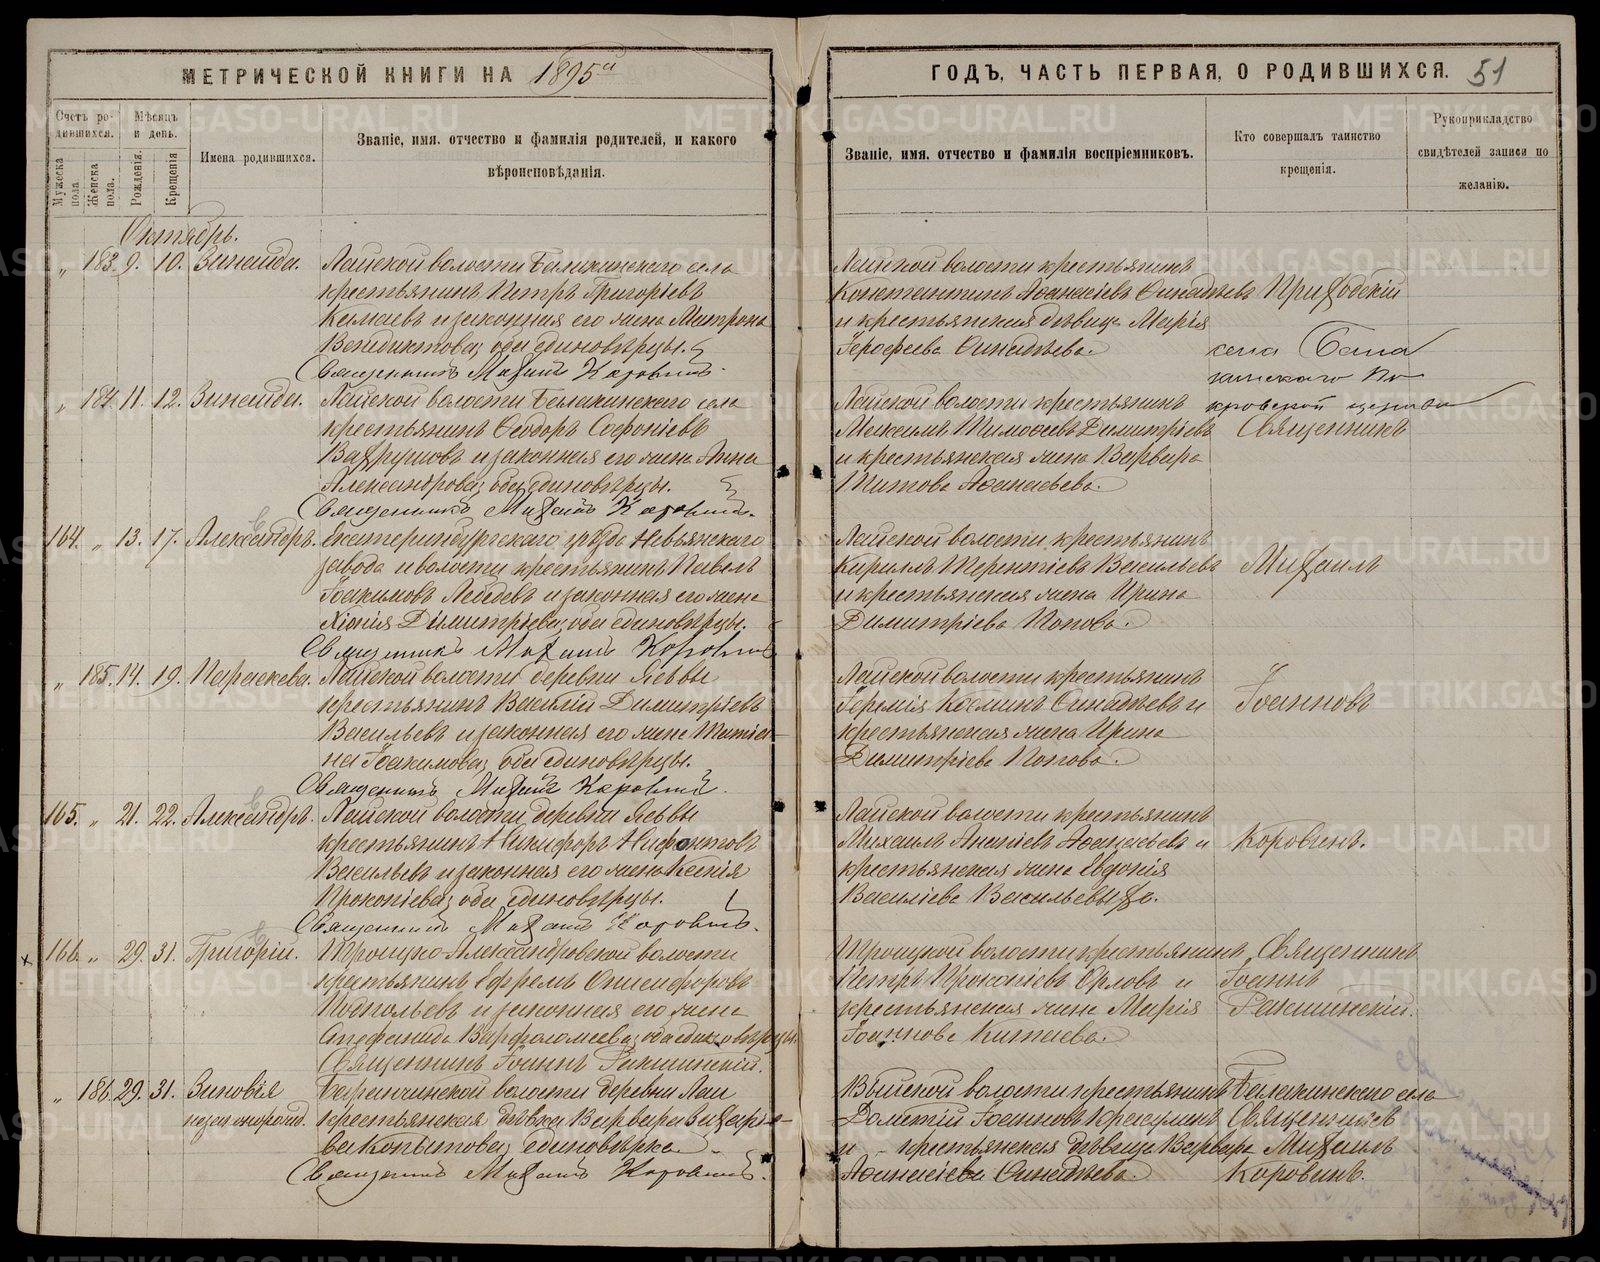 МЕТРИЧЕСКОЙ КНИГИ НА 1895й
ГОДЪ, ЧАСТЬ ПЕРВАЯ, О РОДИВШИХСЯ. 51
Счетъ родившихся.
Мужеска пола
Женска пола.
Мѣсяцъ и день.
Рожденія.
Крещенія
Имена родившихся.
Званіе, имя, отчество и фамилія родителей, и какого
вѣроисповѣданія.
Званіе, имя, отчество и фамилія воспріемниковъ.
Кто совершалъ таинство
крещенія.
Рукоприкладство
свидѣтелей записи по
желанію.
Октябрь.
„ 183. 9. 10. Зинаида. Лайской волости Балакинскаго села
крестьянинъ Петръ Григоріевъ
и законная его жена Матрона
Венедиктова; оба единовѣрцы.
Священникъ Михаилъ Коровинъ.
Лайской волости крестьянинъ
Константинъ Аѳанасіевъ
и крестьянская дѣвица Марія
Іероѳеева
Приходскій
села Бала
кинскаго По
кровской церкви
„ 184. 11. 12. Зинаида. Лайской волости Балакинскаго села
крестьянинъ Ѳеодоръ Софоніевъ
Вахрушовъ и законная его жена Анна
Александрова; оба единовѣрцы.
Священникъ Михаилъ Коровинъ.
Лайской волости крестьянинъ
Максимъ Тимоѳеевъ Димитріевъ
и крестьянская жена Варвара
Титова Аѳанасьева.
Священникъ
164. „ 13. 17. Александръ. Екатеринбургскаго уѣзда Невьянскаго
завода и волости крестьянинъ Павелъ
Іоакимовъ Лебедевъ и законная его жена
Хіонія Димитріева; оба единовѣрцы.
Священникъ Михаилъ Коровинъ
Лайской волости крестьянинъ
Кириллъ Терентіевъ Васильевъ
и крестьянская жена Ирина
Димитріева Попова.
Михаилъ
„ 185. 14. 19. Параскева. Лайской волости деревни
крестьянинъ Василій Димитріевъ
Васильевъ и законная его жена Татіа-
на Іоакимова; оба единовѣрцы.
Священникъ Михаилъ Коровинъ.
Лайской волости крестьянинъ
Іеремія Косминъ и
крестьянская жена Ирина
Димитріева Попова.
Іоанновъ
165. „ 21. 22. Александръ. Лайской волости деревни
крестьянинъ Никифоръ Нифонтовъ
Васильевъ и законная его жена Ксенія
Прокопіева; оба единовѣрцы.
Священникъ Михаилъ Коровинъ.
Лайской волости крестьянинъ
Михаилъ Ананіевъ Аѳанасьевъ и
крестьянская жена Евдокія
Василіева Васильевыхъ.
Коровинъ.
166. „ 29. 31. Григорій. Троицко-Александровской волости
крестьянинъ Ефремъ Онисифоровъ
и законная его жена
Стефанида Варфоломеева; оба единовѣрцы.
Священникъ Іоаннъ
Троицкой волости крестьянинъ
Петръ Прокопіевъ Орловъ и
крестьянская жена Марія
Іоаннова Китаева.
Священникъ
Іоаннъ
„ 186. 29. 31. Зиновія
незаконорожд. Баранчинской волости деревни Лаи
крестьянская дѣвица Варвара
Копытова; единовѣрка.
Священникъ Михаилъ Коровинъ.
Выйской волости крестьянинъ
Дометій Іоанновъ
и крестьянская дѣвица Варвара
Аѳанасіева
Балакинскаго села
Священникъ
Михаилъ
Коровинъ.
METRIKI.GASO-URAL.RU